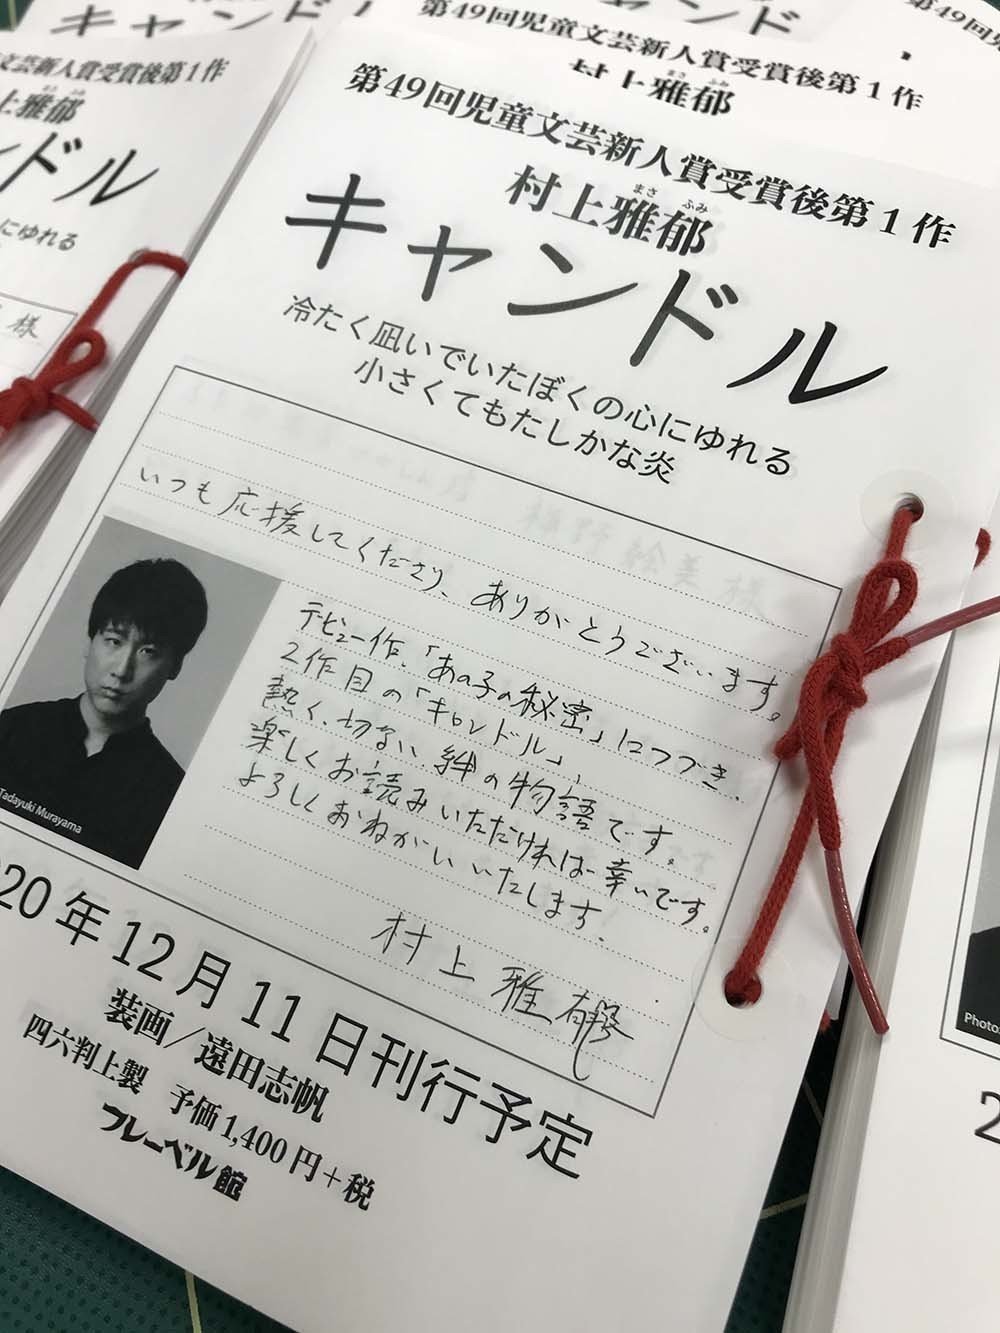 第49回児童文芸新人賞受賞後第1作
村上雅郁
第49回児童文芸新人賞受賞後第1作
村上雅郁
まさ ふみ
キャンドル
冷たく凪いでいたぼくの心にゆれる
小さくてもたしかな炎
いつも応援してくださり、ありがとうございます。
デビュー作、「あの子の秘密」につづき、
2作目の「キャンドル」、
熱く、切ない、絆の物語です。
楽しくお読みいただければ幸いです。
よろしくおねがいいたします。
村上雅郁
Tadayuki Murayama
20年12月11日刊行予定
装画/遠田志帆
四六判上製 予価1,400円+税
フレーベル館
文芸新人賞受賞後第1作
上雅郁
ンドル
にゆれる
様
Photo
2